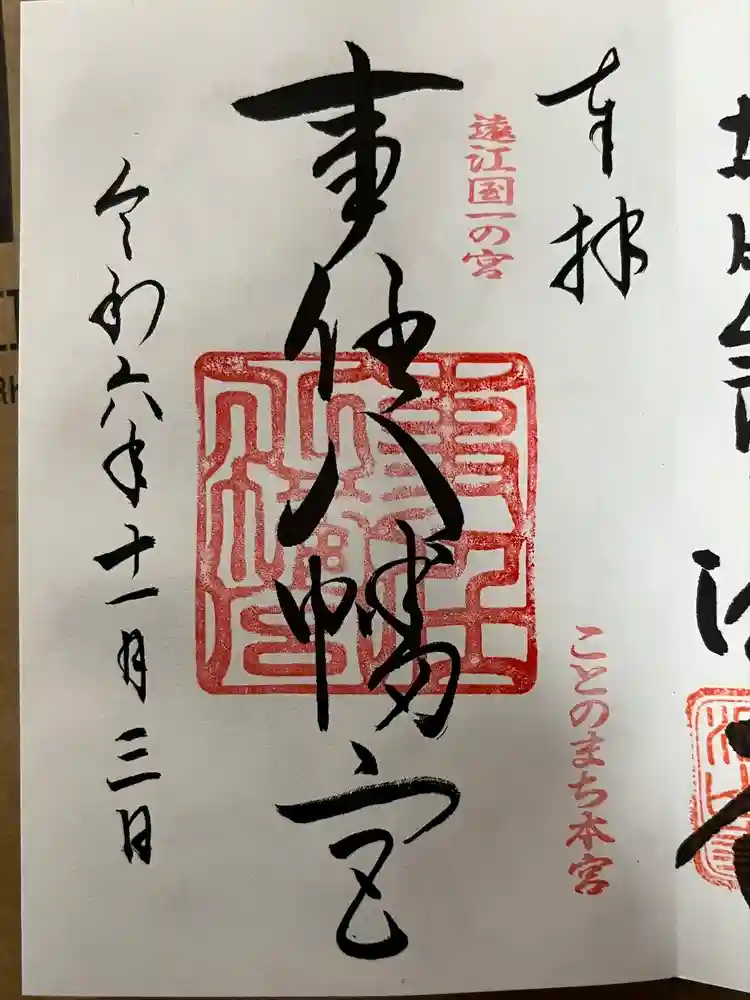 奉拝
遠江国一の宮
事任八幡宮
ことのまち本宮
令和六年十一月三日